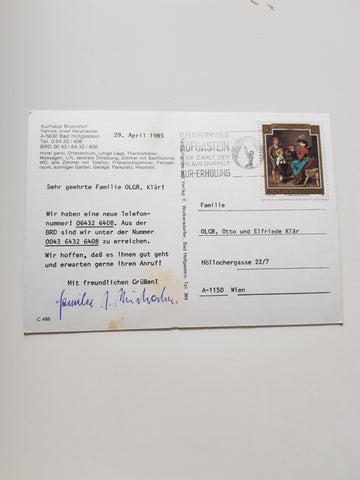 Kurhaus Brunnhof
A-5630 Bad Hofgastein
Tel. 0 64 32 / 408
BRD 00 43 / 64 32 / 408
Hotel garni, Ortszentrum, ruhige Lage, Thermalbäder,
Massagen, Lift, zentrale Ölheizung, Zimmer mit Bad/Dusche,
WC, alle Zimmer mit Telefon, Frühstückszimmer, Fernseh-
raum, sonniger Garten, Garage, Parkplatz, Haustaxi.
29. April 1985
Sehr geehrte Familie OLGR. Klär!
Wir haben eine neue Telefon-
nummer! 06432 6408. Aus der
BRD sind wir unter der Nummer
0043 6432 6408 zu erreichen.
Wir hoffen, daß es Ihnen gut geht
und erwarten gerne Ihren Anruf!
Mit freundlichen Grüßen!
Familie
C 486
HOFGASTEIN
HIER ZÄHLT DER
URLAUB DOPPELT
KUR-ERHOLUNG
Familie
OLGR. Otto und Elfriede Klär
Höllochergasse 22/7
A-1150 Wien